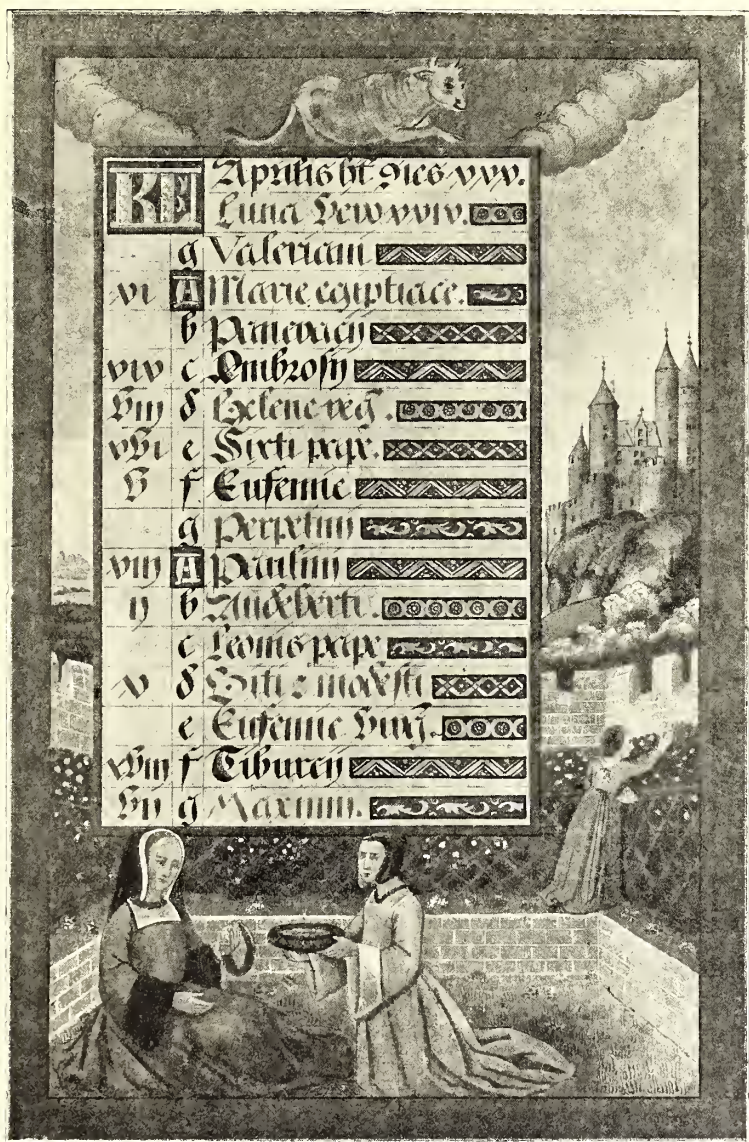 KL Aprilis ht dies xxx.
Luna vero xxix.
g Valeriani
xi A Marie egiptiace.
b Pancracij
xix c Ambrosij
viij d Helene reg.
xvi e Sixti pape.
v f Eufemie
g Perpetuij
xiij A
ij b Audeberti.
c Leonis pape
x d Viti z modesti
e Eufemie virg.
xviij f Tiburcij
vij g Maximi.